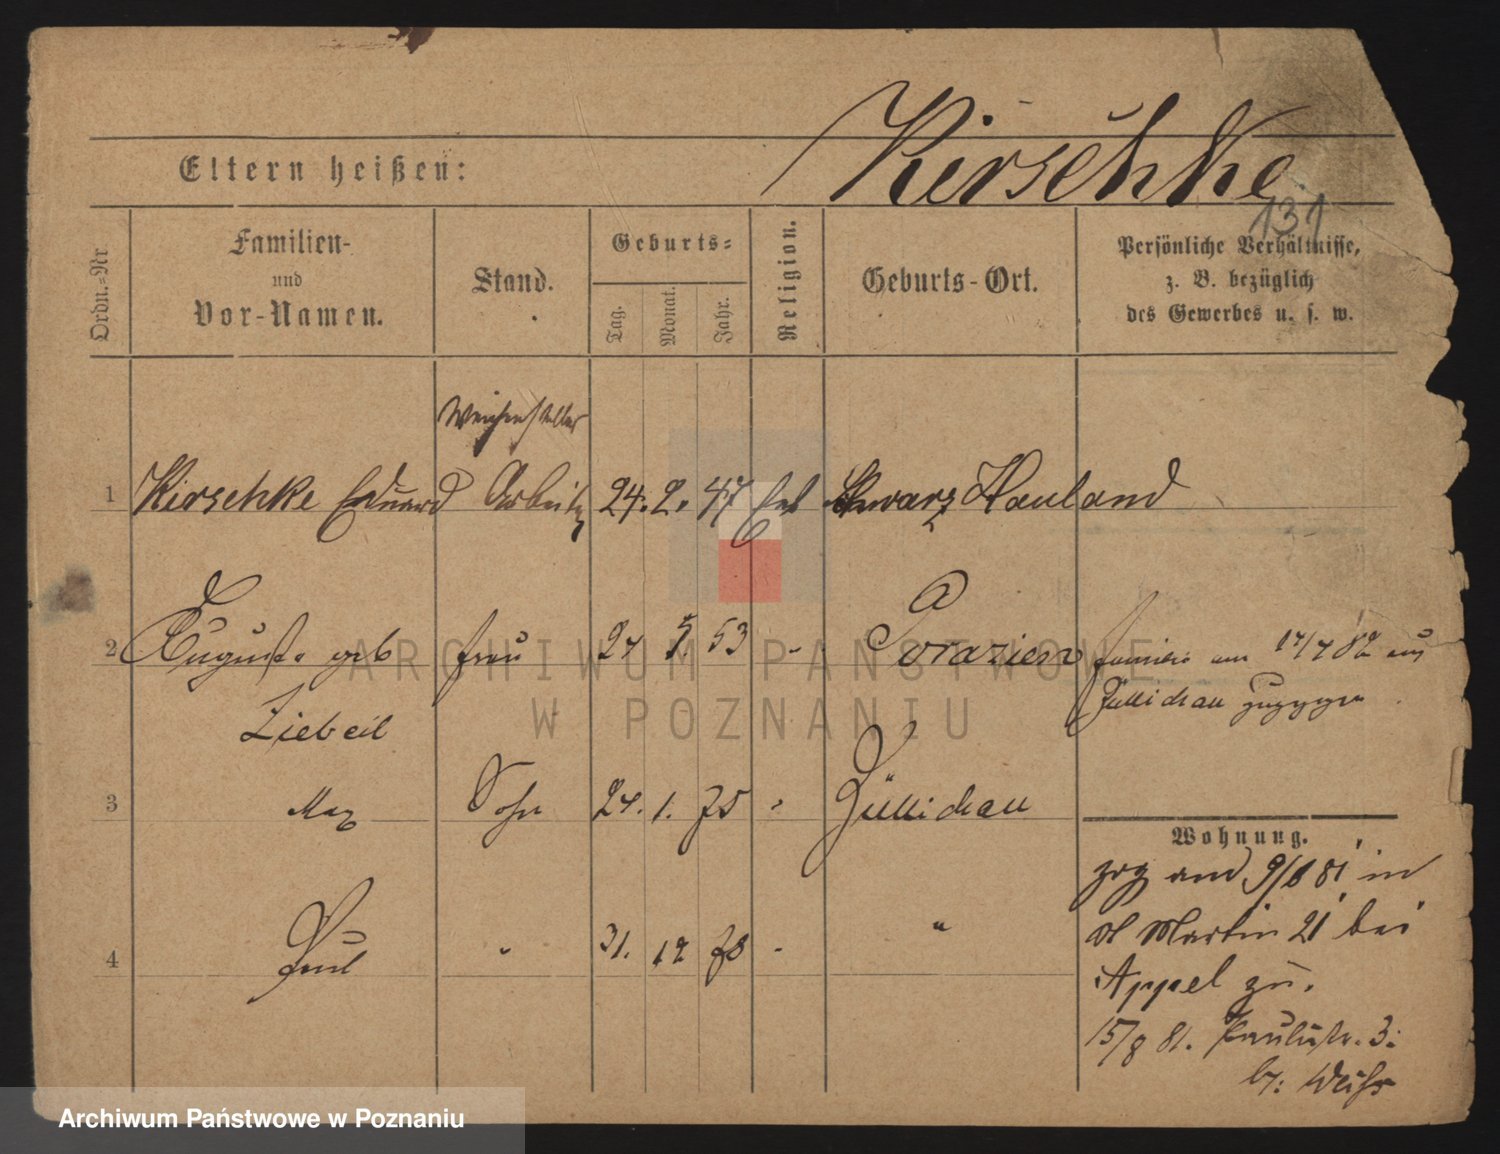 Kirschke
Eltern heißen:
131
Ordn.-Nr
Familien-
und
Vor-Namen.
Stand.
Geburts-
Tag.
Monat.
Jahr.
Religion.
Geburts-Ort.
Persönliche Verhältnisse,
z. B. bezüglich
des Gewerbes u. s. w.
Weichensteller
1 Kirschke Eduard Arbeiter 24. 2. 47 Schwarz Hauland
2 Auguste geb frau 27 5. 53 " Porazien familie am 17/7 82 aus
Ziebeil
Züllichau
3 Max Sohn 24. 1. 75 " Züllichau
Wohnung.
zog am 9/8 81 in
St Martin 21 bei
4 Paul " 31. 12 78 " "
Appel zu.
15/8 81. Paulistr. 3.
b: Weihs
ARCHIWUM PAŃSTWOWE
W POZNANIU
Archiwum Państwowe w Poznaniu